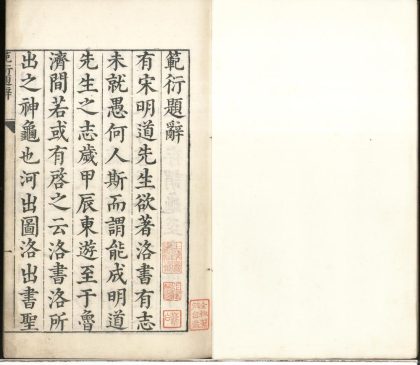 範衍題辭
有宋明道先生欲著洛書有志
未就愚何人斯而謂能成明道
先生之志歲甲辰東遊至于魯
濟間若或有啓之云洛書洛所
出之神龜也河出圖洛出書聖
範衍題辭